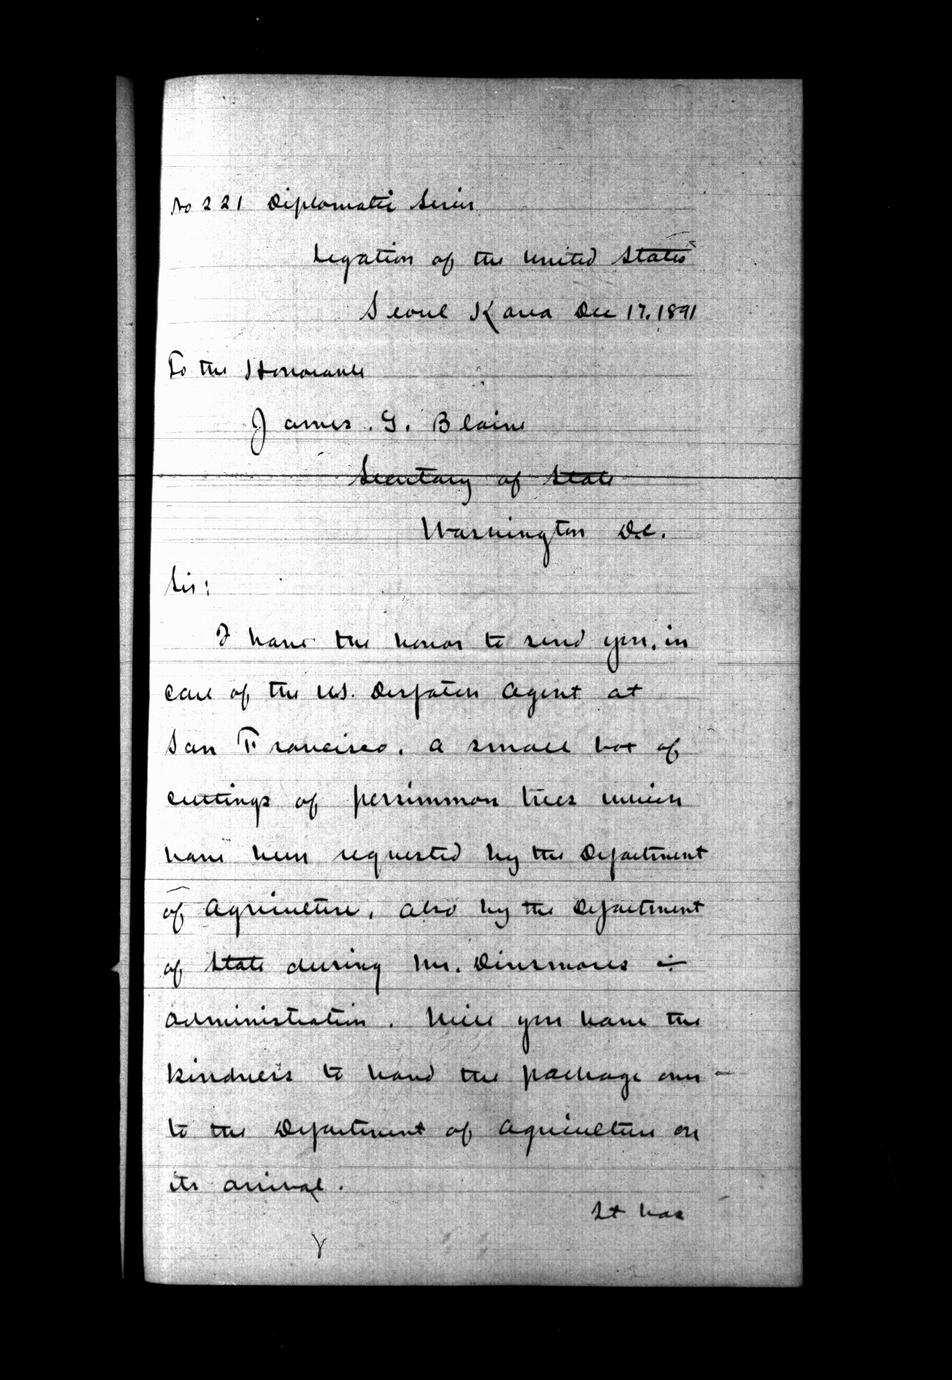 No 221 Diplomatic Series
Legation of the United States
Seoul Korea Dec 17, 1891
To the Honorable
James G. Blaine
Secretary of State
Washington D.C.
Sir:
I have the honor to send you, in
care of the U.S. Despatch Agent at
San Francisco, a small box of
cuttings of persimmon trees which
have been requested by the Department
of Agriculture, also by the Department
of State during Mr. Dinsmores
administration. Will you have the
kindness to hand the package over
to the Department of Agriculture on
its arrival.
It has